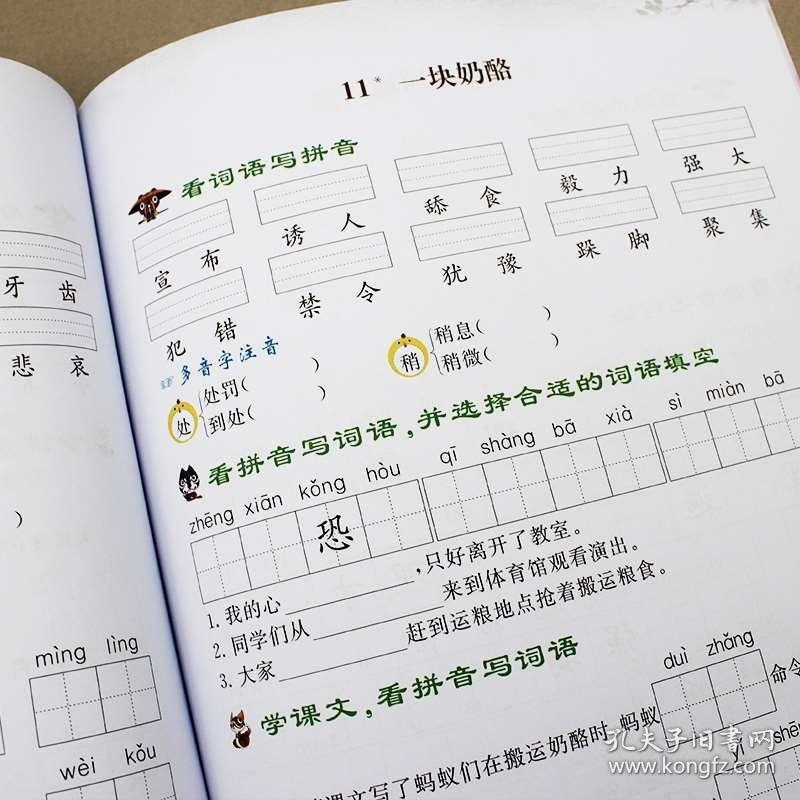 11* 一块奶酪
看词语写拼音
宣布 诱人 舔食 毅力 强大
犯错 禁令 犹豫 跺脚 聚集
多音字注音
处 处罚( ) 到处( )
稍 稍息( ) 稍微( )
看拼音写词语,并选择合适的词语填空
zhēng xiān kǒng hòu qī shàng bā xià sì miàn bā
恐
1.我的心________,只好离开了教室。
2.同学们从________来到体育馆观看演出。
3.大家________赶到运粮地点抢着搬运粮食。
学课文,看拼音写词语
duì zhǎng
课文写了蚂蚁们在搬运奶酪时,蚂蚁 命令
牙齿
悲哀
)
mìng lìng
wèi kǒu
孔夫子旧书网
www.kongfz.com